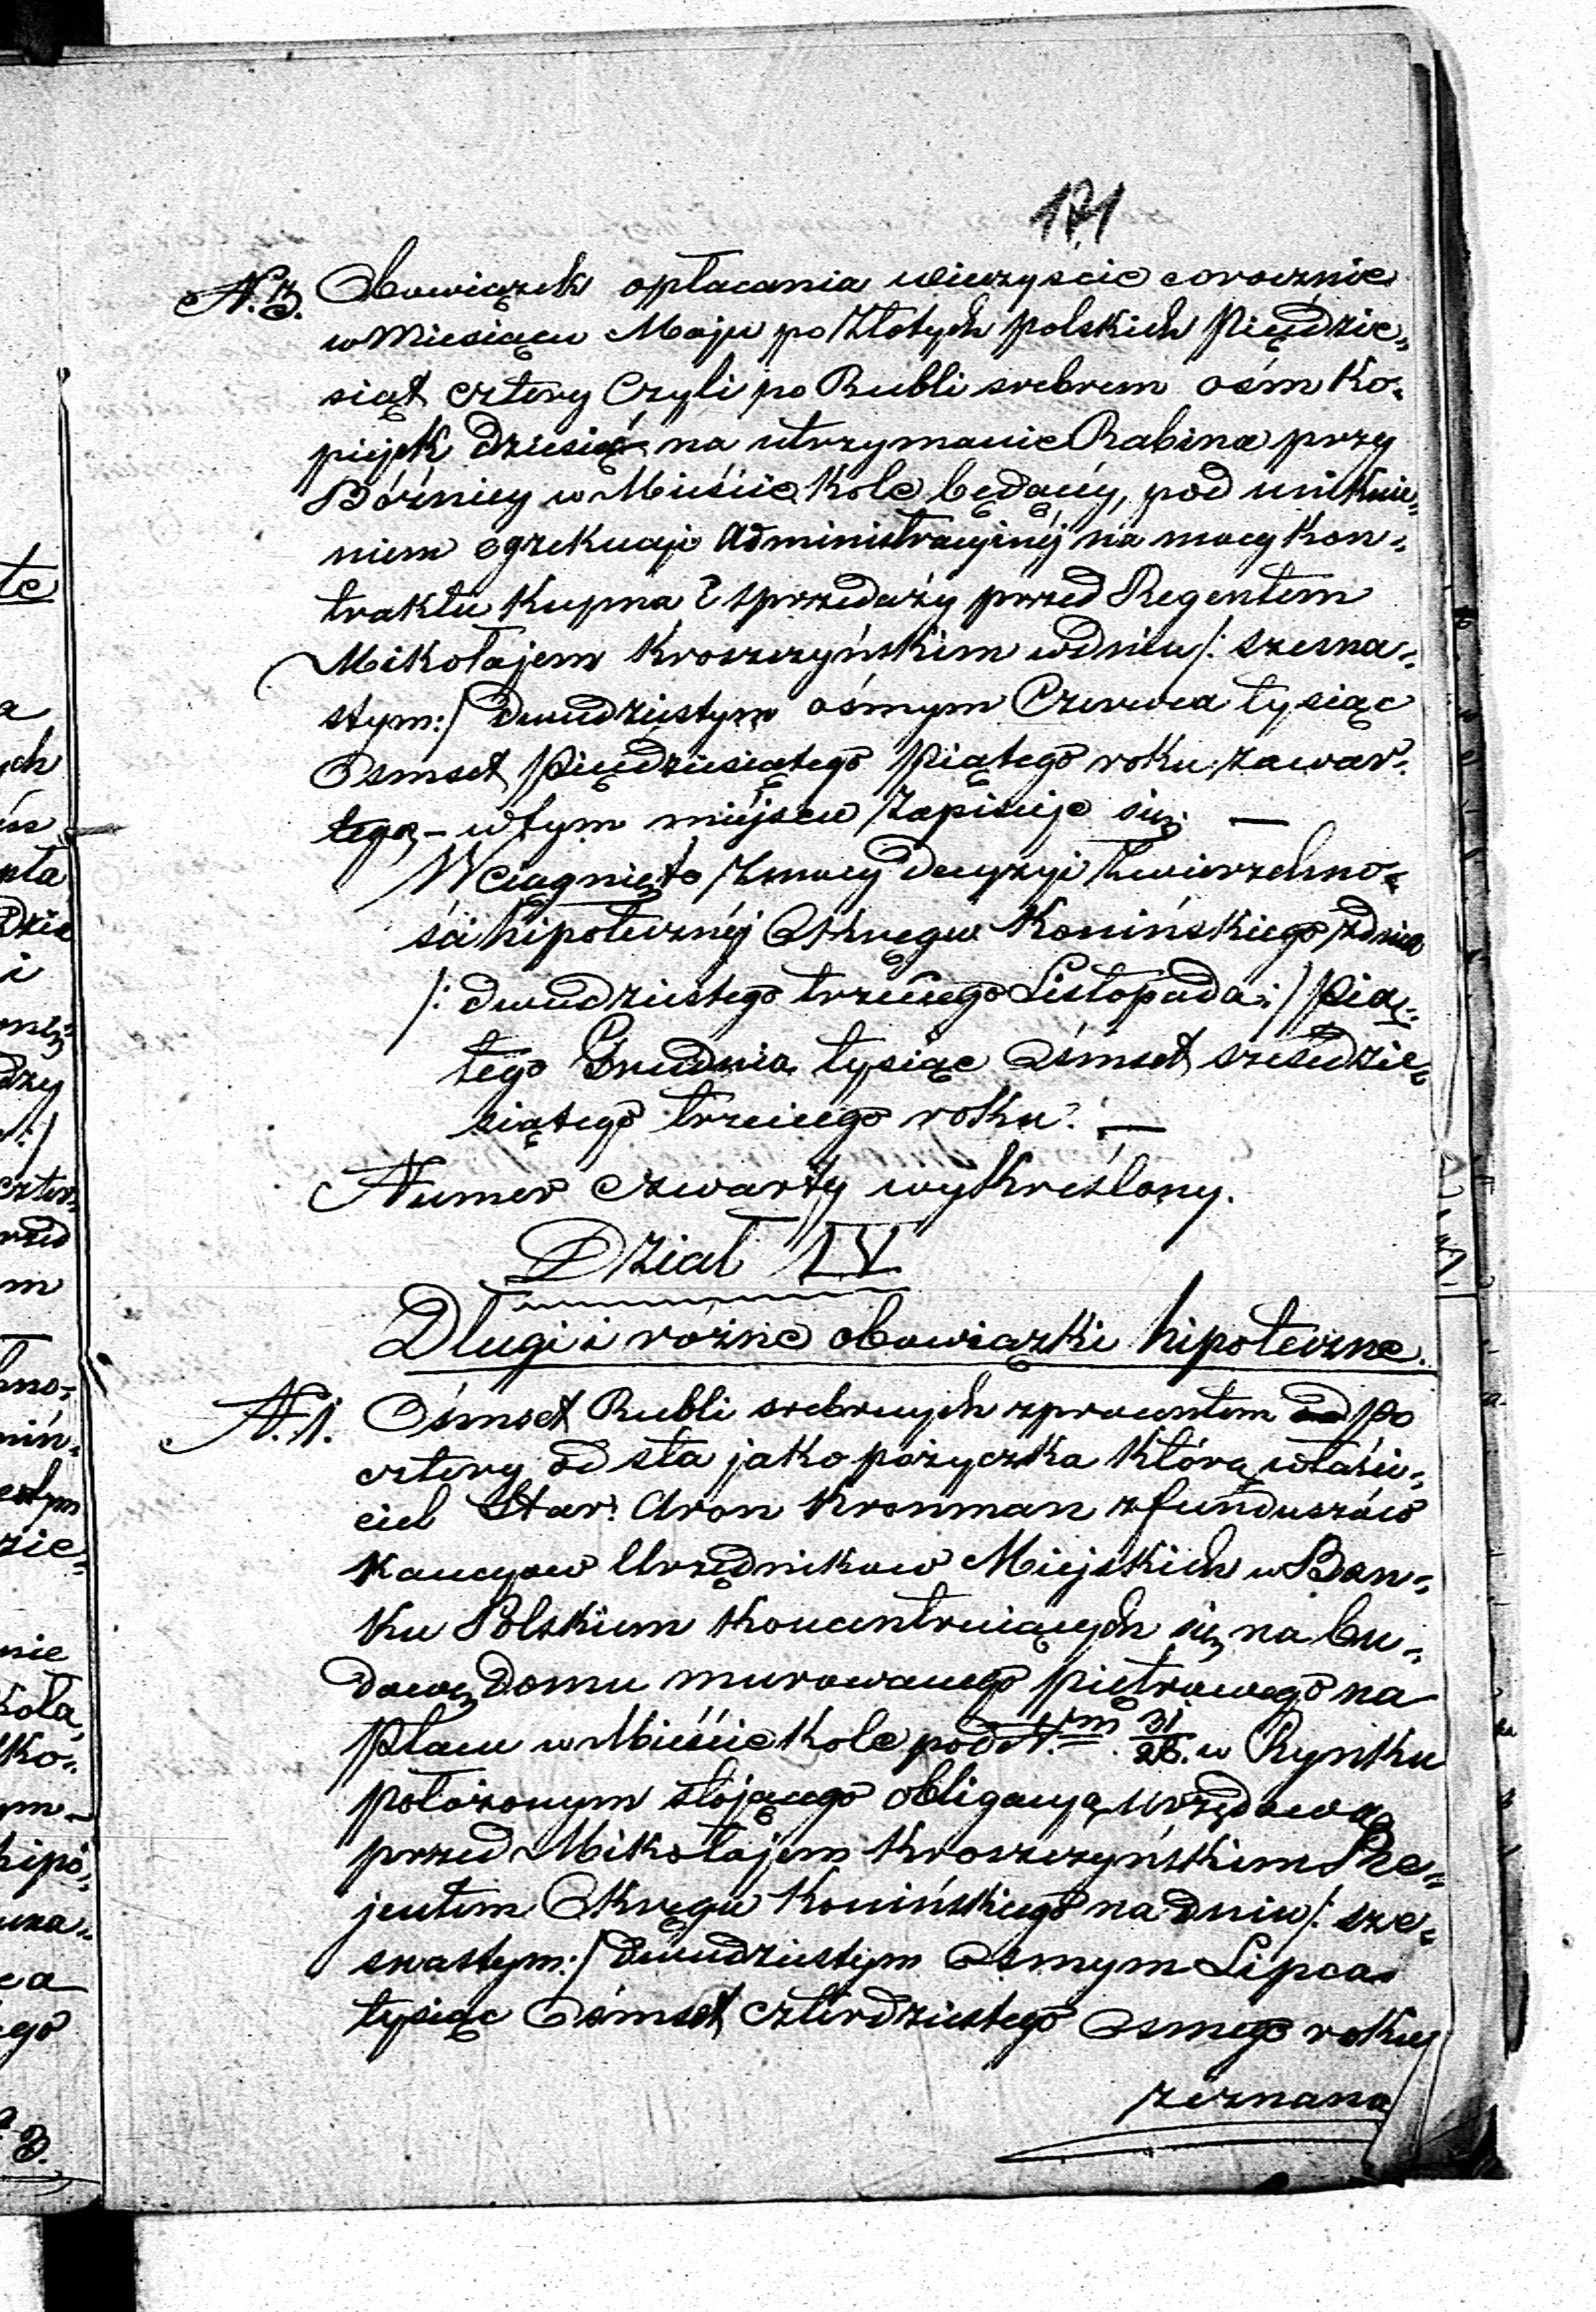 171
N. 3. Obowiązek opłacania wieczyście corocznie
w Miesiącu Maju po Złotych polskich Pięćdzie„
siąt cztery Czyli po Rubli srebrem ośm Ko„
piejek dziesięć na utrzymanie Rabina przy
Bóźnicy w Mieście Kole będącéy, pod uniknie„
niem egzekucji Administracyjnéj na mocy kon„
traktu Kupna i sprzedaży przed Regentem
Mikołajem Kroszczyńskim w dniu /: szesna„
stym :/ dwudziestym ósmym Czerwca tysiąc
Osmset pięćdziesiątego piątego roku zawar„
tego – w tym miejscu Zapisuje się. —
Wciągnięto z mocy Decyzyi Zwierzchno„
ści hipotecznéj Okręgu Konińskiego z dnia
/: dwudziestego trzeciego Listopada :/ pią„
tego Grudnia tysiąc Ośmset sześćdzie„
siątego trzeciego roku. —
Numer czwarty wykreślony.
Dział IV
Długi i różne obowiązki hipoteczne.
N. 1. Ośmset Rubli srebrnych z procentem od po
cztery od sta jako pożyczka którą właści„
ciel Star. Aron Kronman z funduszów
Kaucyow Urzędnikow Miejskich w Ban„
ku Polskiem koncentruiących się na bu„
dowę Domu murowanego piętrowego na
placu w Mieście Kole pod N.m 31/26. w Rynku
położonym stojącego obligacyą urzędową
przed Mikołajem Kroszczyńskim Re„
jentem Okręgu Konińskiego na dniu /: sze„
snastym :/ dwudziestym Osmym Lipca
tysiąc Ośmset czterdziestego Osmego roku
zeznana